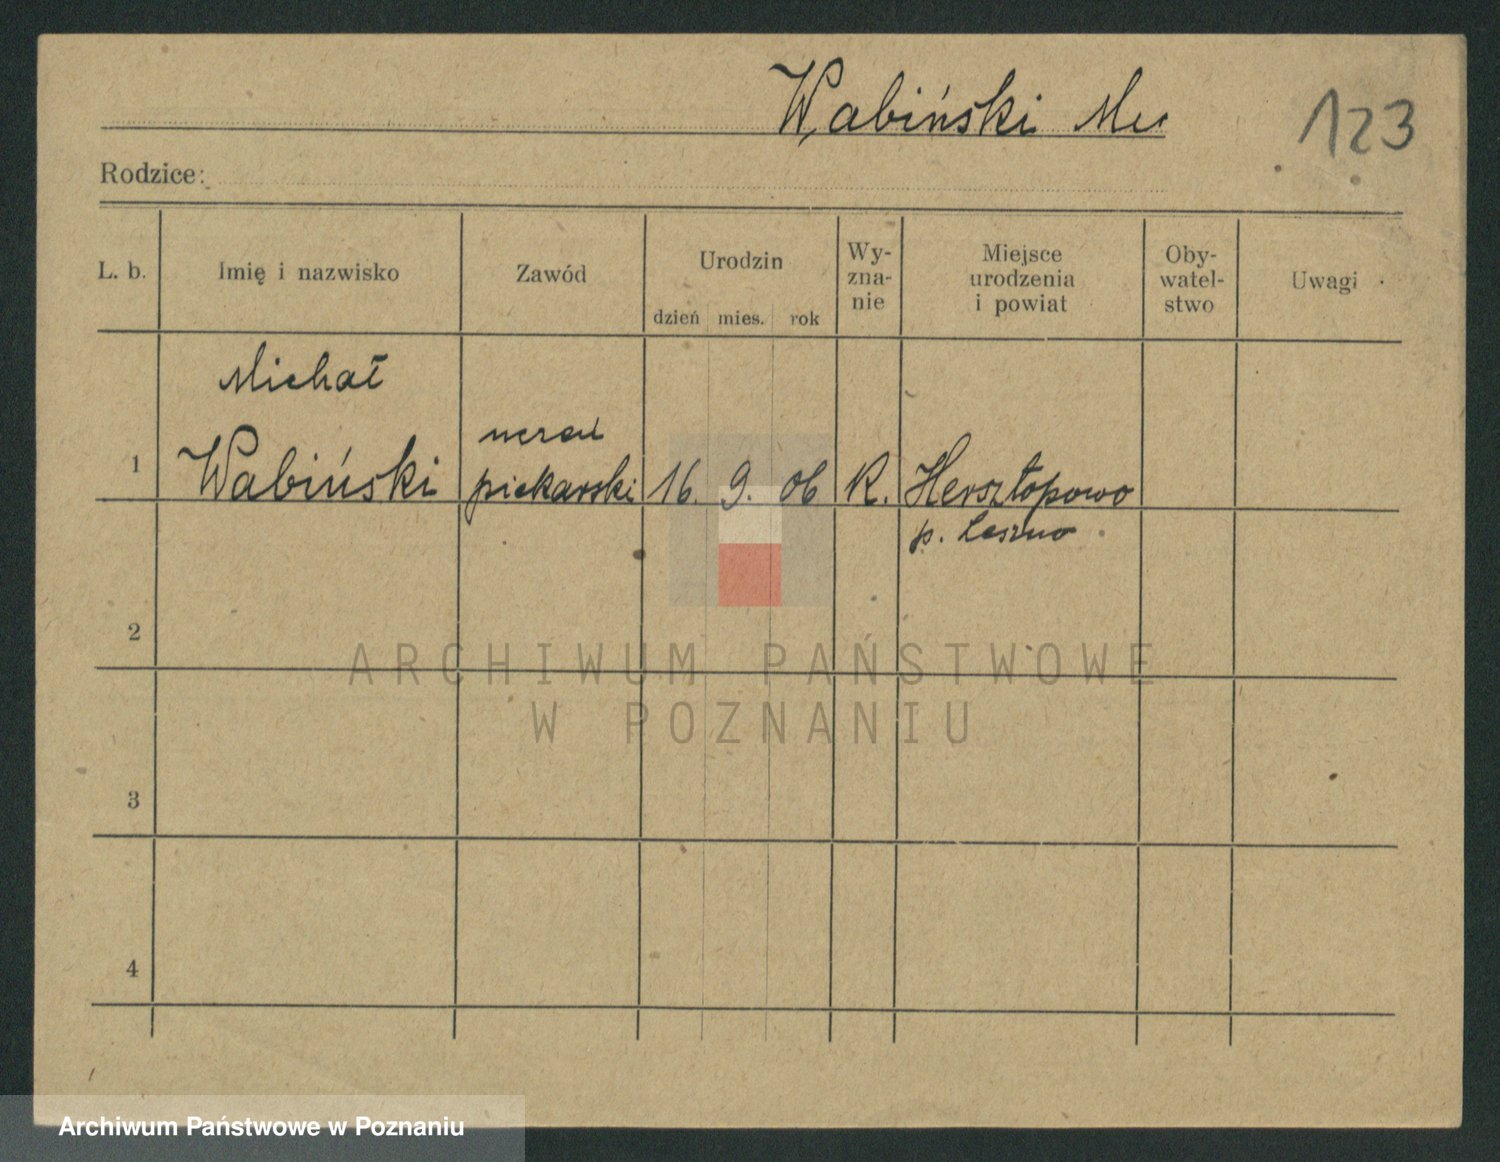 Wabiński Mic
123
Rodzice:
L. b.
Imię i nazwisko
Zawód
Urodzin
dzień mies. rok
Wy-
zna-
nie
Miejsce
urodzenia
i powiat
Oby-
watel-
stwo
Uwagi
1
Michał
Wabiński
uczeń
piekarski
16. 9. 06
R.
Hersztopowo
p. Leszno
2
3
4
ARCHIWUM PAŃSTWOWE
W POZNANIU
Archiwum Państwowe w Poznaniu